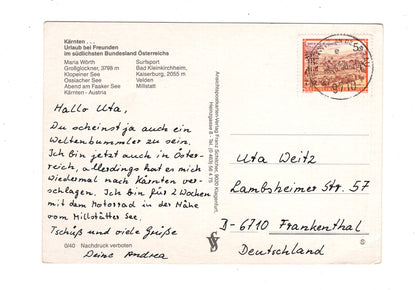 Kärnten . . .
Urlaub bei Freunden
im südlichsten Bundesland Österreichs
Maria Wörth
Großglockner, 3798 m
Klopeiner See
Ossiacher See
Abend am Faaker See
Kärnten - Austria
Surfsport
Bad Kleinkirchheim,
Kaiserburg, 2055 m
Velden
Millstatt
Hallo Uta,
Du scheinst ja auch ein
Weltenbummler zu sein.
Ich bin jetzt auch in Öster-
reich, allerdings hat es mich
wiedermal nach Kärnten ver-
schlagen. Ich bin für 2 Wochen
mit dem Motorrad in der Nähe
vom Millstätter See.
Tschüß und viele Grüße
Deine Andrea
0/40 Nachdruck verboten
Ansichtspostkarten-Verlag Franz Schilcher, 9020 Klagenfurt,
5S
9710
Uta Weitz
Lambsheimer Str. 57
D-6710 Frankenthal
Deutschland
S